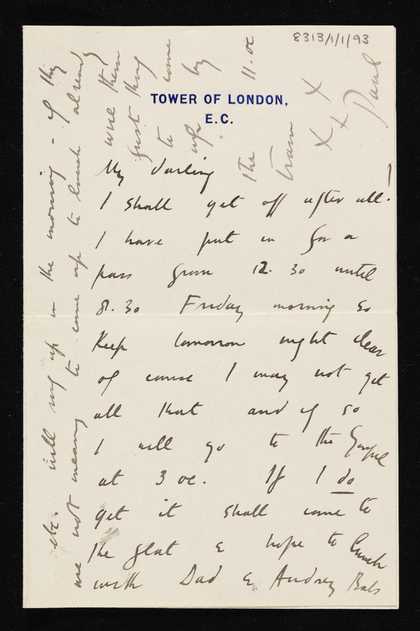 8313/1/1/93
TOWER OF LONDON,
E.C.
My darling
I shall get off after all!
I have put in for a
pass from 12.30 until
8.30 Friday morning so
Keep tomorrow night clear
of course I may not get
all that and if so
I will go to the Gospel
at 3 oc. If I do
get it shall come to
the flat & hope to lunch
with Dad & Audrey Babs
etc. will ring up in the morning - if they
are not meaning to come up to lunch already
wire them
just they
to come
up by
the 11. oc
train X X
X X
Paul